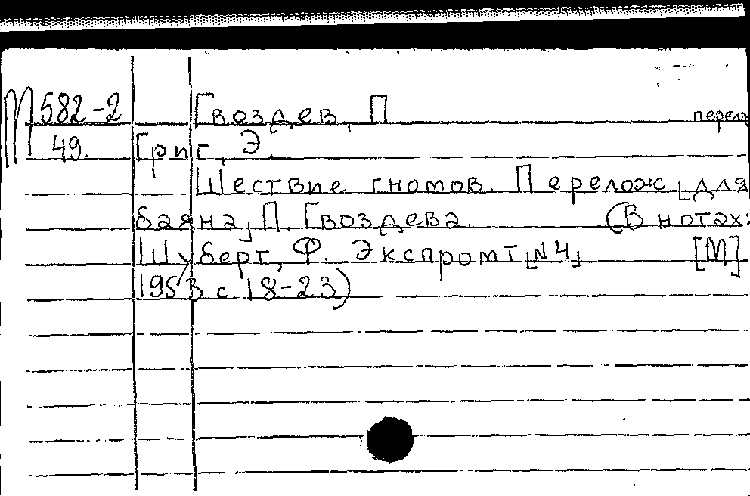 М 582-2 Гвоздев, П перел
49. Григ, Э.
Шествие гномов. Перелож. [для
баяна] П. Гвоздева. (В нотах:
Шуберт, Ф. Экспромт [№4] [М]
1953 с 18-23)